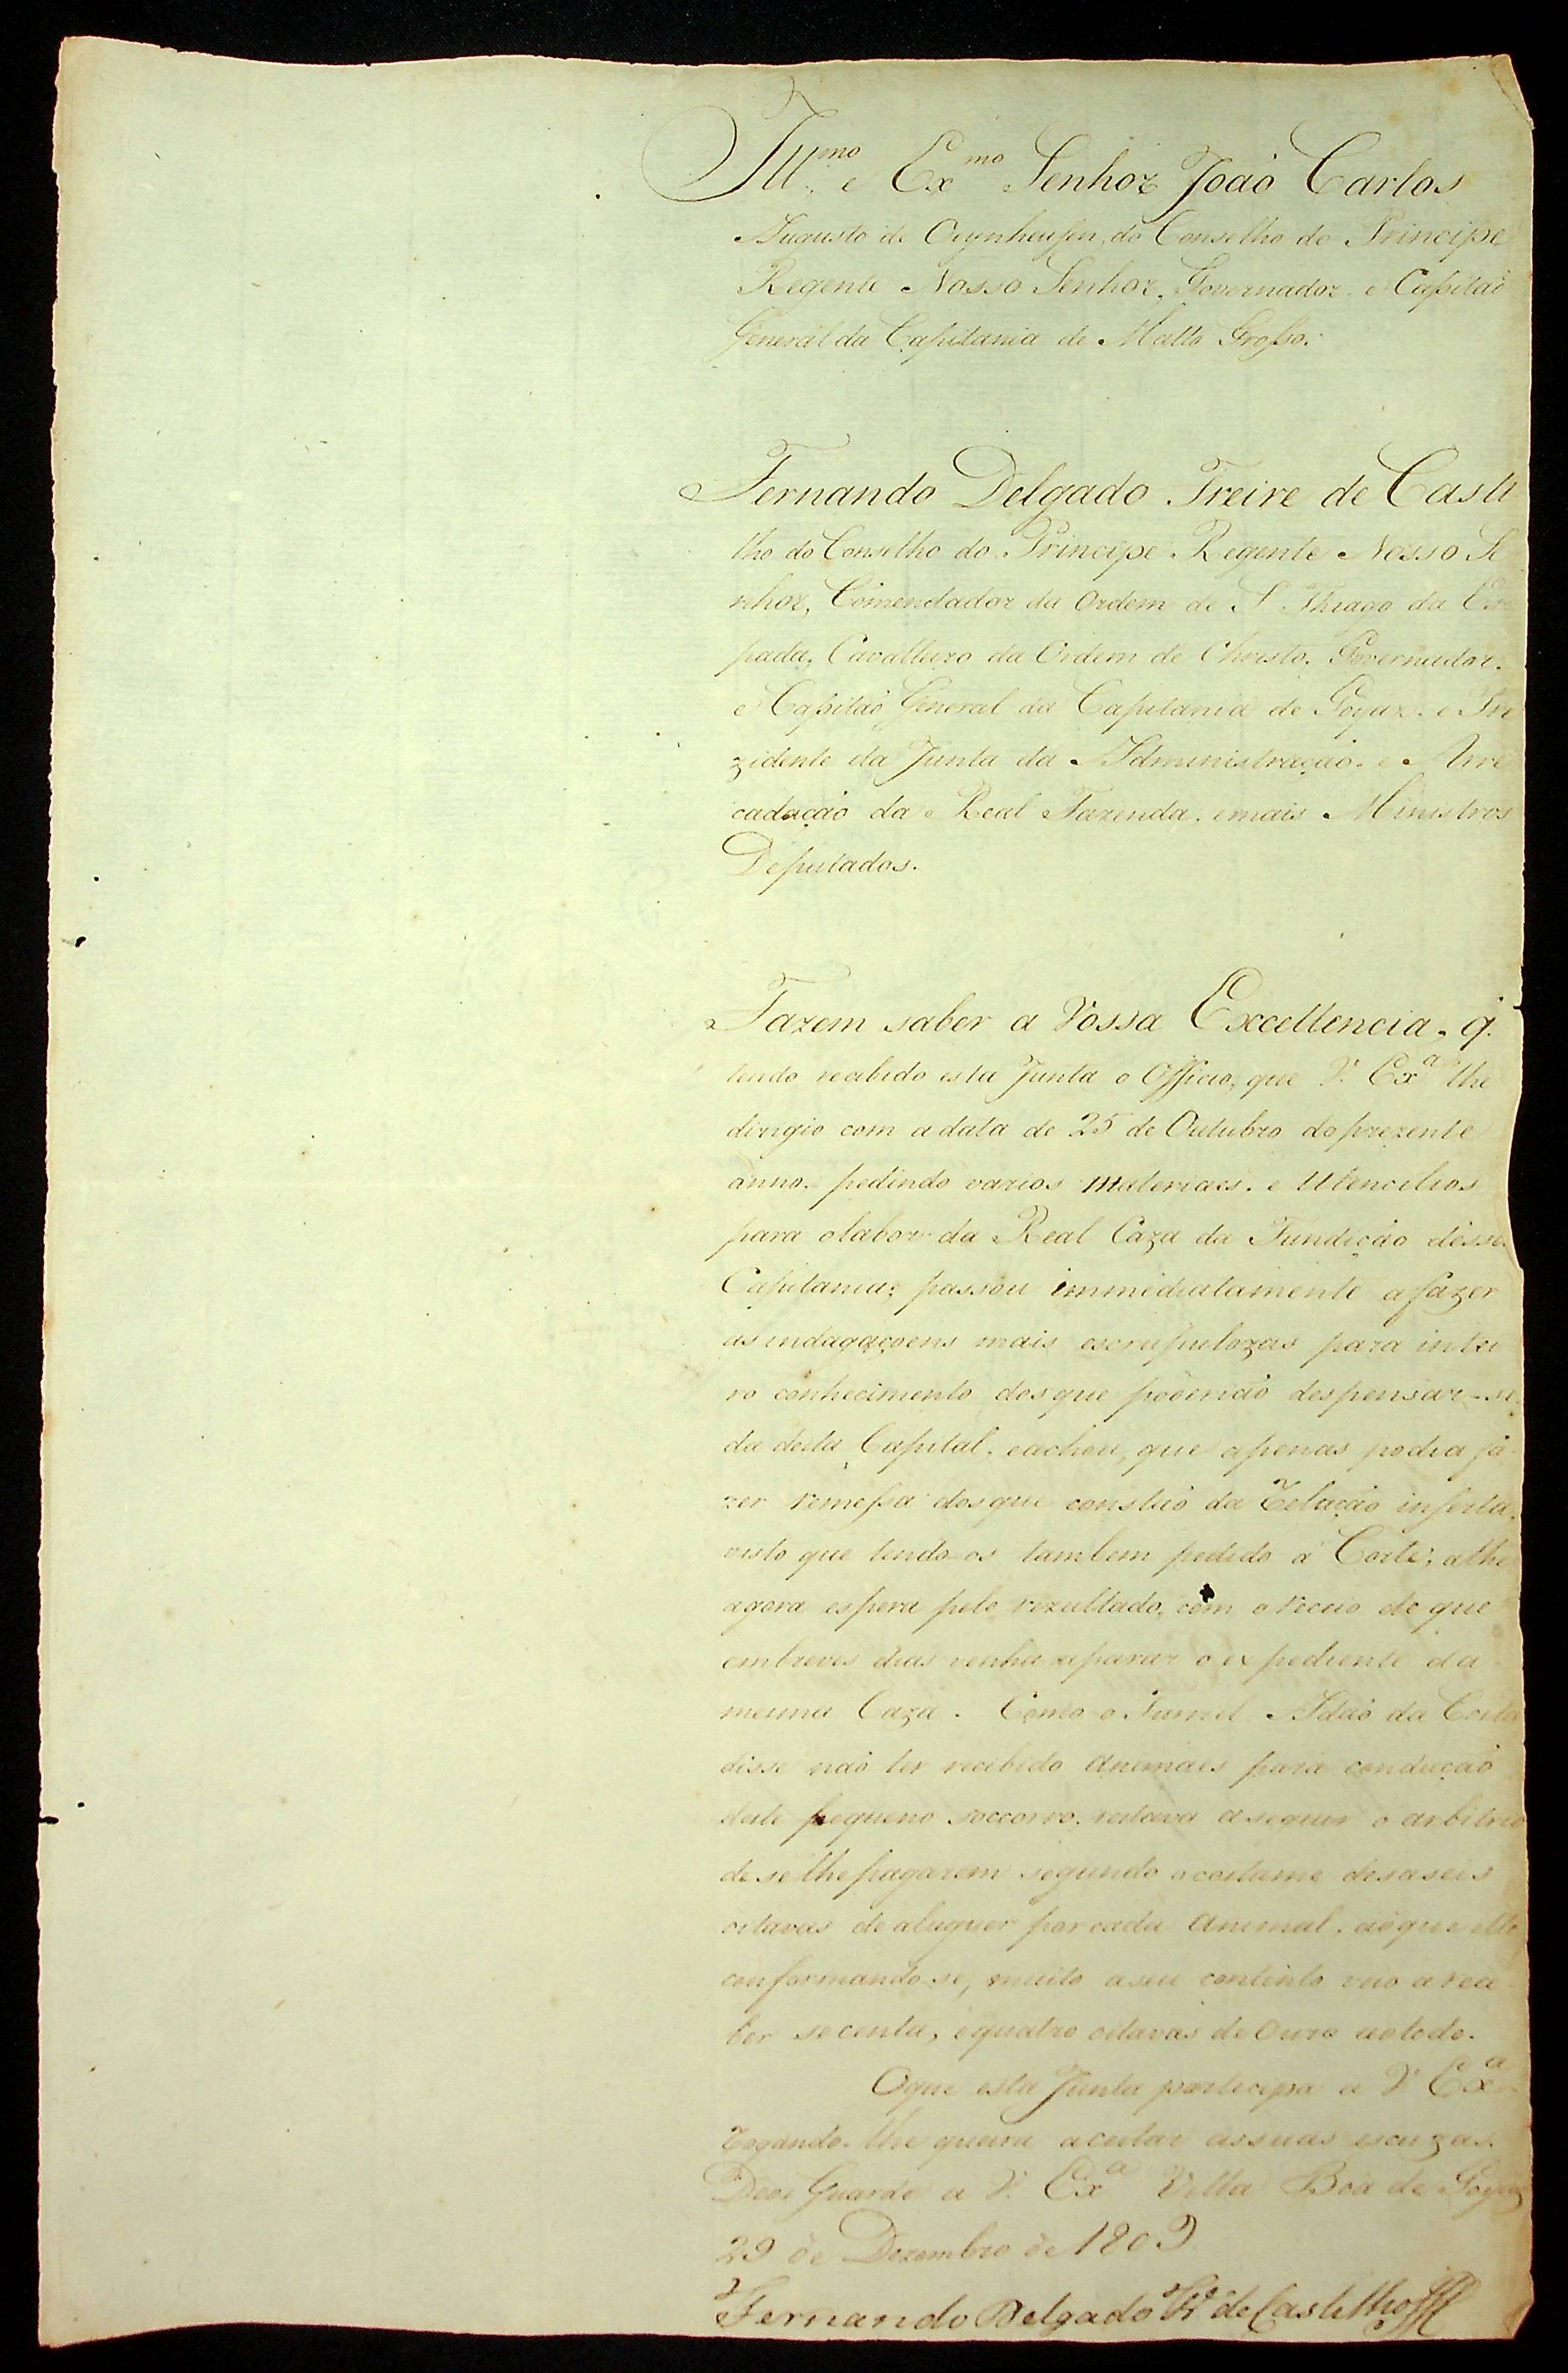 Ill.mo e Ex.mo Senhor João Carlos
Augusto de Oeynhausen, do Conselho do Principe
Regente Nosso Senhor, Governador e Capitaõ
General da Capitania de Matto Grosso.
Fernando Delgado Freire de Casti
lho do Conselho do Principe Regente Nosso Se
nhor, Comendador da Ordem de S. Thiago da Es
pada, Cavalleiro da Ordem de Christo, Governador,
e Capitaõ General da Capitania de Goyaz, e Pre
zidente da Junta da Administração, e Arre
cadação da Real Fazenda, emais Ministros
Deputados.
Fazem saber a Vossa Excellencia, q.
tendo recebido esta Junta o Officio, que V. Ex.a lhe
dirigio com adata de 25 de Outubro do prezente
anno, pedindo varios materiaes, e Utencilios
para olabor da Real Caza da Fundição dessa
Capitania; passou immediatamente afazer
as indagaçoens mais escrupulozas para intei
ro conhecimento dosque poderiaõ despensar-se
da desta Capital, eachou, que apenas podia fa
zer remessa dosque constaõ da Relação inserta,
visto que tendo-os tambem pedido á Corte, athe
agora espera pelo rezultado, com o receio de que
embreves dias venha aparar o expediente da
mesma Caza. Como o Furriel Adaõ da Costa
disse naõ ter recebido animaes para conducçaõ
deste pequeno soccorro, restava aseguir o arbitrio
de selhe pagarem segundo o costume desaseis
oitavas de aluguer por cada animal, aoque elle
conformando-se, muito aseu contento veio a rece
ber secenta, equatro oitavas de Ouro aotodo.
Oque esta Junta participa a V. Ex.a
rogando-lhe queira aceitar assuas escuzas.
Deos Guarde a V. Ex.a Villa Boa de Goyaz
29 de Dezembro de 1809
Fernando Delgado Fr.e de Castilho